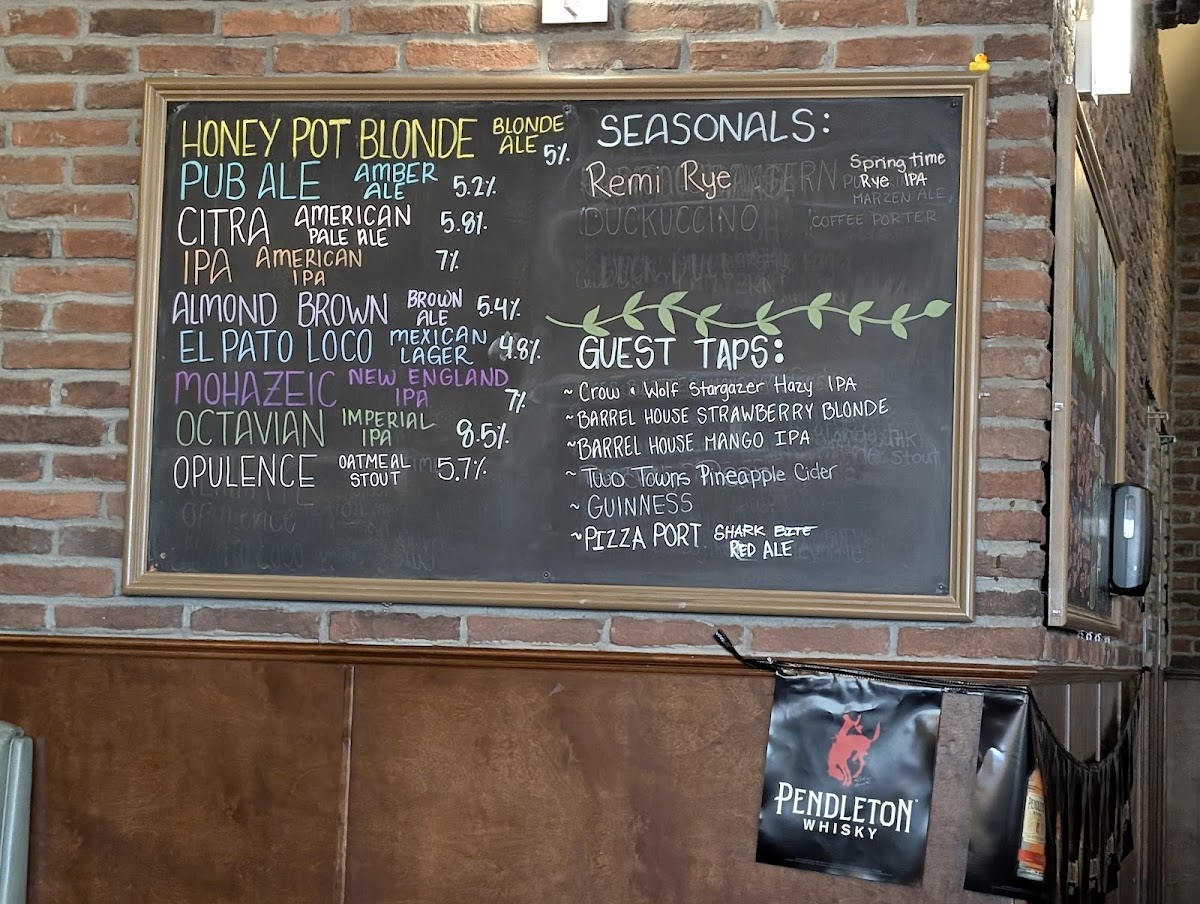 HONEY POT BLONDE BLONDE ALE 5%
PUB ALE AMBER ALE 5.2%
CITRA AMERICAN PALE ALE 5.8%
IPA AMERICAN IPA 7%
ALMOND BROWN BROWN ALE 5.4%
EL PATO LOCO MEXICAN LAGER 4.8%
MOHAZEIC NEW ENGLAND IPA 7%
OCTAVIAN IMPERIAL IPA 8.5%
OPULENCE OATMEAL STOUT 5.7%
Opulence
SEASONALS:
Remi Rye Springtime Rye IPA
MARZEN ALE
DUCKUCCINO COFFEE PORTER
GUEST TAPS:
~Crow & Wolf Stargazer Hazy IPA
~BARREL HOUSE STRAWBERRY BLONDE
~BARREL HOUSE MANGO IPA
~Two Towns Pineapple Cider
~GUINNESS
~PIZZA PORT SHARK BITE RED ALE
PENDLETON
WHISKY